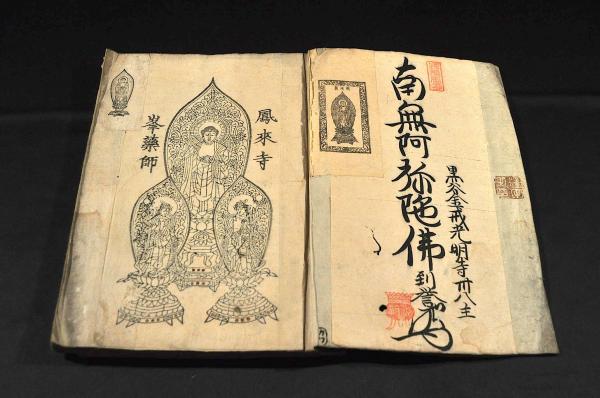 鳳來寺
峯藥師
南無阿弥陀佛
黒谷金戒光明寺卅八主
到誉